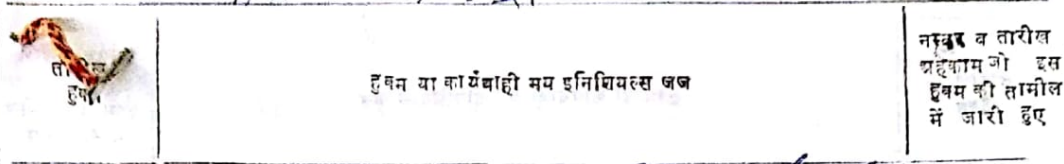 तारीख
हुक्म
हुक्म या कार्यवाही मय इनिशियल्स जज
नम्बर व तारीख
अहकाम जो इस
हुक्म की तामील
में जारी हुए